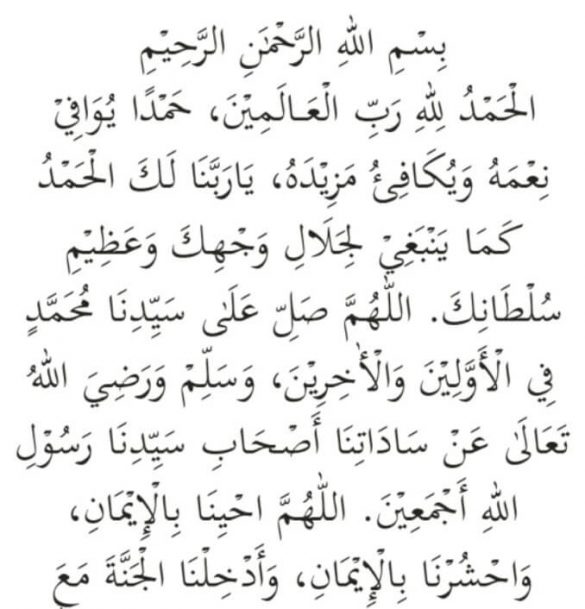 بِسْمِ اللهِ الرَّحْمٰنِ الرَّحِيْمِ
الْحَمْدُ لِلّٰهِ رَبِّ الْعَـالَمِيْنَ، حَمْدًا يُوَافِيْ
نِعْمَهُ وَيُكَافِئُ مَزِيْدَهُ، يَارَبَّنَا لَكَ الْحَمْدُ
كَمَا يَنْبَغِيْ لِجَلَالِ وَجْهِكَ وَعَظِيْمِ
سُلْطَانِكَ. اللّٰهُمَّ صَلِّ عَلَى سَيِّدِنَا مُحَمَّدٍ
فِي الْأَوَّلِيْنَ وَالْأٰخِرِيْنَ، وَسَلِّمْ وَرَضِيَ اللهُ
تَعَالَى عَنْ سَادَاتِنَا أَصْحَابِ سَيِّدِنَا رَسُوْلِ
اللهِ أَجْمَعِيْنَ. اللّٰهُمَّ احْيِنَا بِالْإِيْمَانِ،
وَاحْشُرْنَا بِالْإِيْمَانِ، وَأَدْخِلْنَا الْجَنَّةَ مَعَ